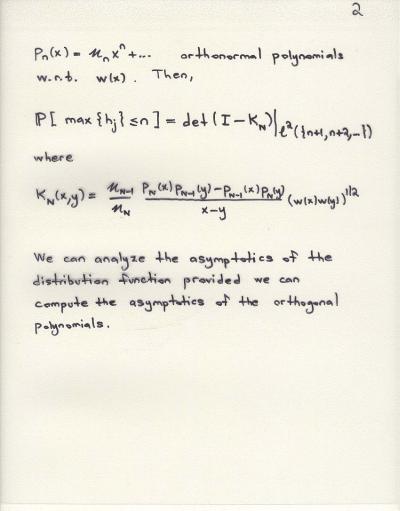 2
Pₙ(x) = ϰₙxⁿ + ... orthonormal polynomials
w.r.t. w(x). Then,
ℙ[ max {hⱼ} ≤ n ] = det (I − K_N)|ℓ²({n+1, n+2, ...})
where
K_N(x,y) = ϰ_{N-1}/ϰ_N (P_N(x)P_{N-1}(y) − P_{N-1}(x)P_N(y))/(x−y) (w(x)w(y))^{1/2}
We can analyze the asymptotics of the
distribution function provided we can
compute the asymptotics of the orthogonal
polynomials.